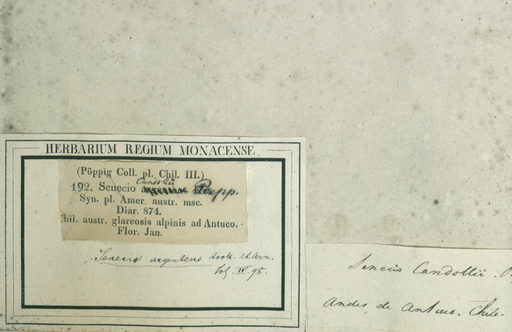 HERBARIUM REGIUM MONACENSE.
(Pöppig Coll. pl. Chil. III.)
Candollii
192. Senecio Poepp.
Syn. pl. Amer. austr. msc.
Diar. 874.
hil. austr. glareosis alpinis ad Antuco.
Flor. Jan.
Senecio argenteus Hook. et Arn.
Senecio Candollii
Andes de Antuco. Chile.